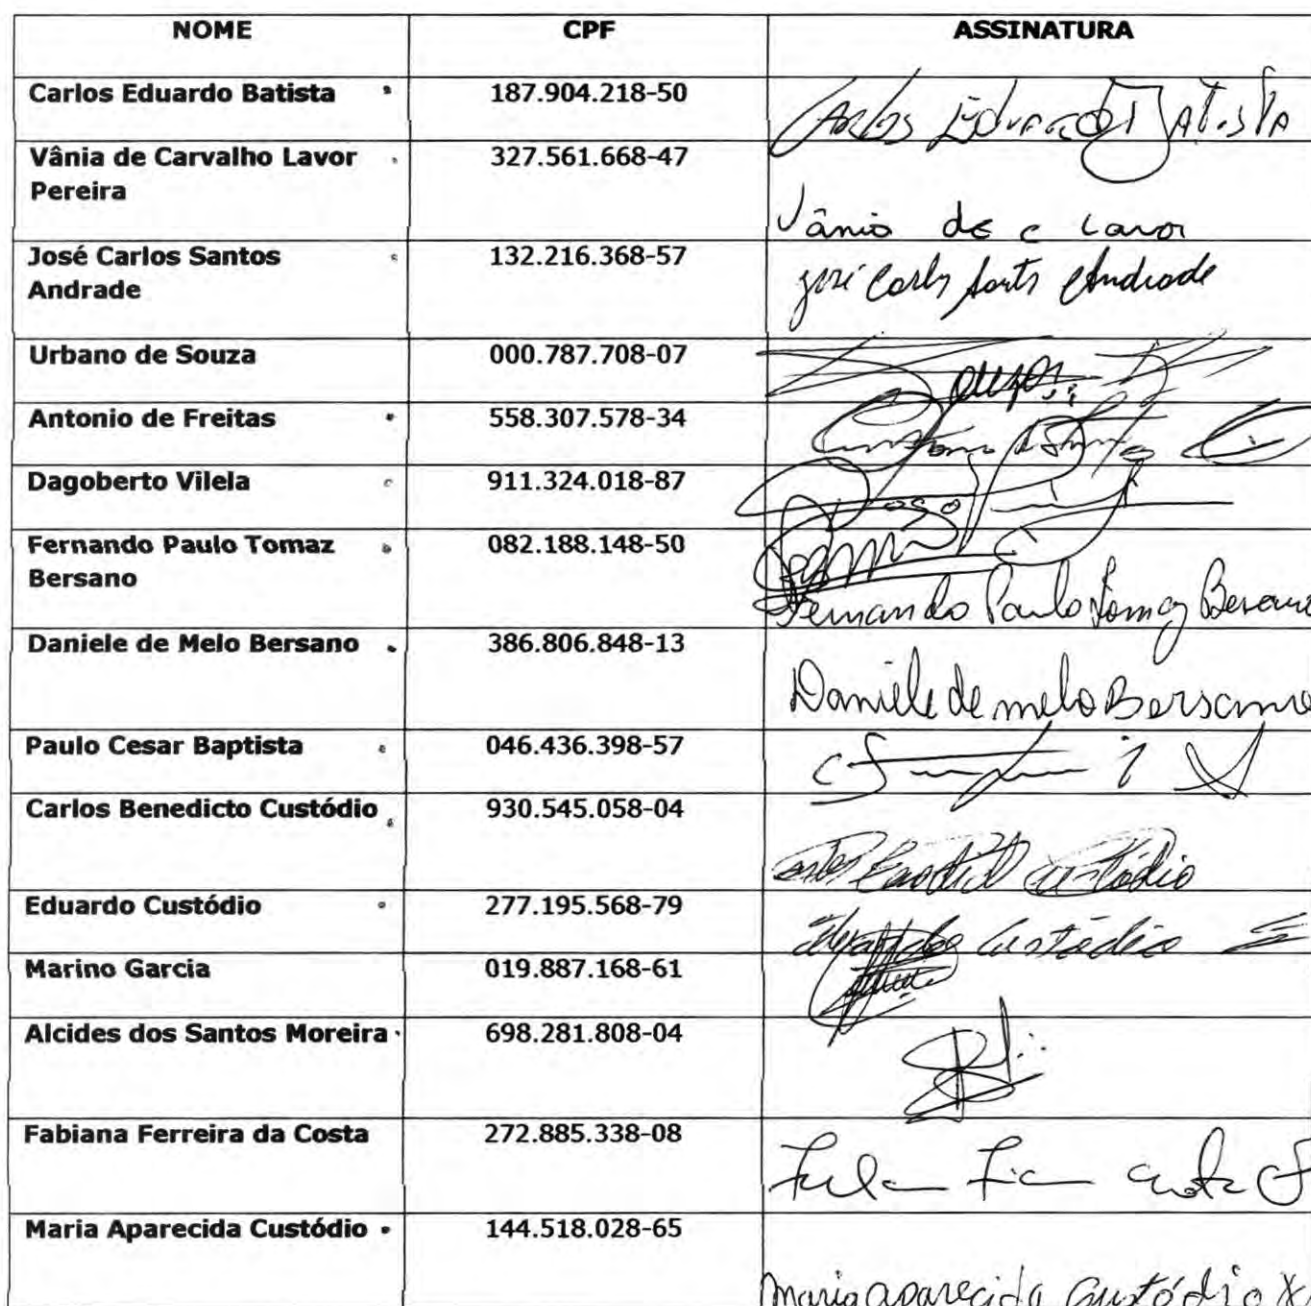 NOME CPF ASSINATURA
Carlos Eduardo Batista 187.904.218-50 Carlos Eduardo Batista
Vânia de Carvalho Lavor 327.561.668-47
Pereira
Vânia de C Lavor
José Carlos Santos 132.216.368-57 José Carlos Santos Andrade
Andrade
Urbano de Souza 000.787.708-07 Souza
Antonio de Freitas 558.307.578-34
Dagoberto Vilela 911.324.018-87
Fernando Paulo Tomaz 082.188.148-50
Bersano
Fernando Paulo Tomaz Bersano
Daniele de Melo Bersano 386.806.848-13
Daniele de melo Bersano
Paulo Cesar Baptista 046.436.398-57
Carlos Benedicto Custódio 930.545.058-04
Custódio
Eduardo Custódio 277.195.568-79 Eduardo Custódio
Marino Garcia 019.887.168-61
Alcides dos Santos Moreira 698.281.808-04
Fabiana Ferreira da Costa 272.885.338-08
Maria Aparecida Custódio 144.518.028-65
Maria aparecida Custódio